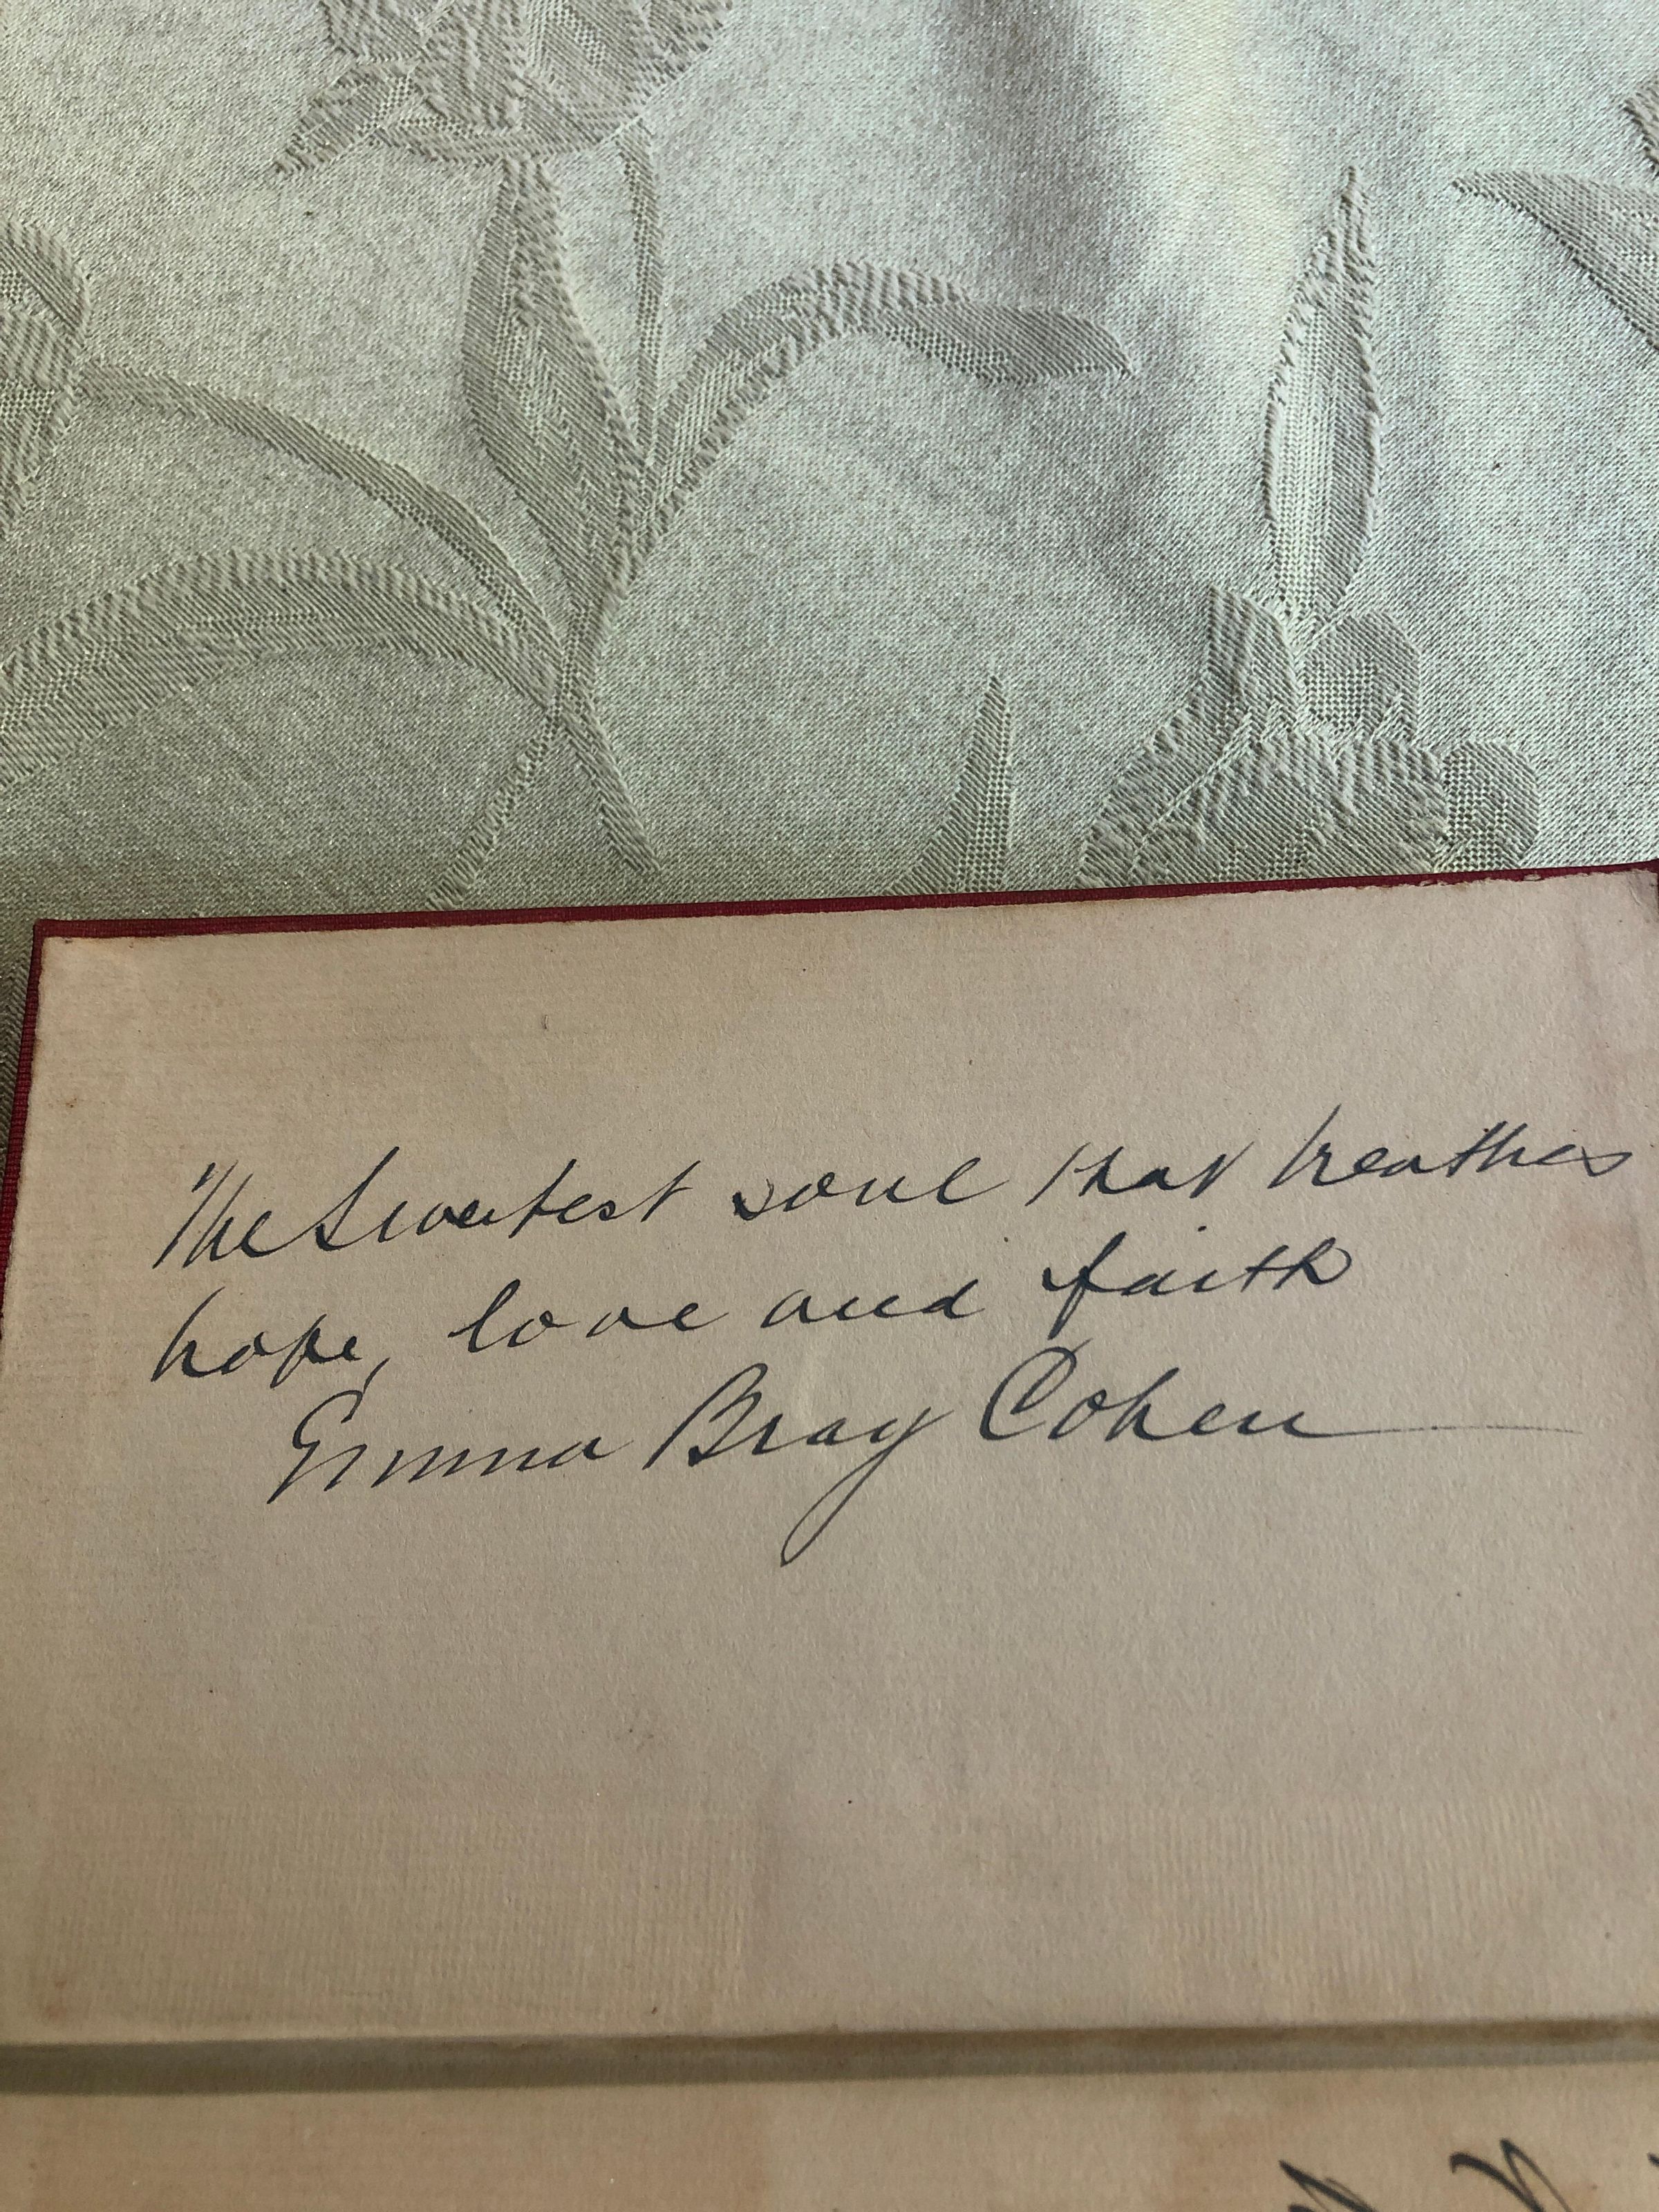 The Sweetest soul that breathes
hope, love and faith
Emma Bray Cohen